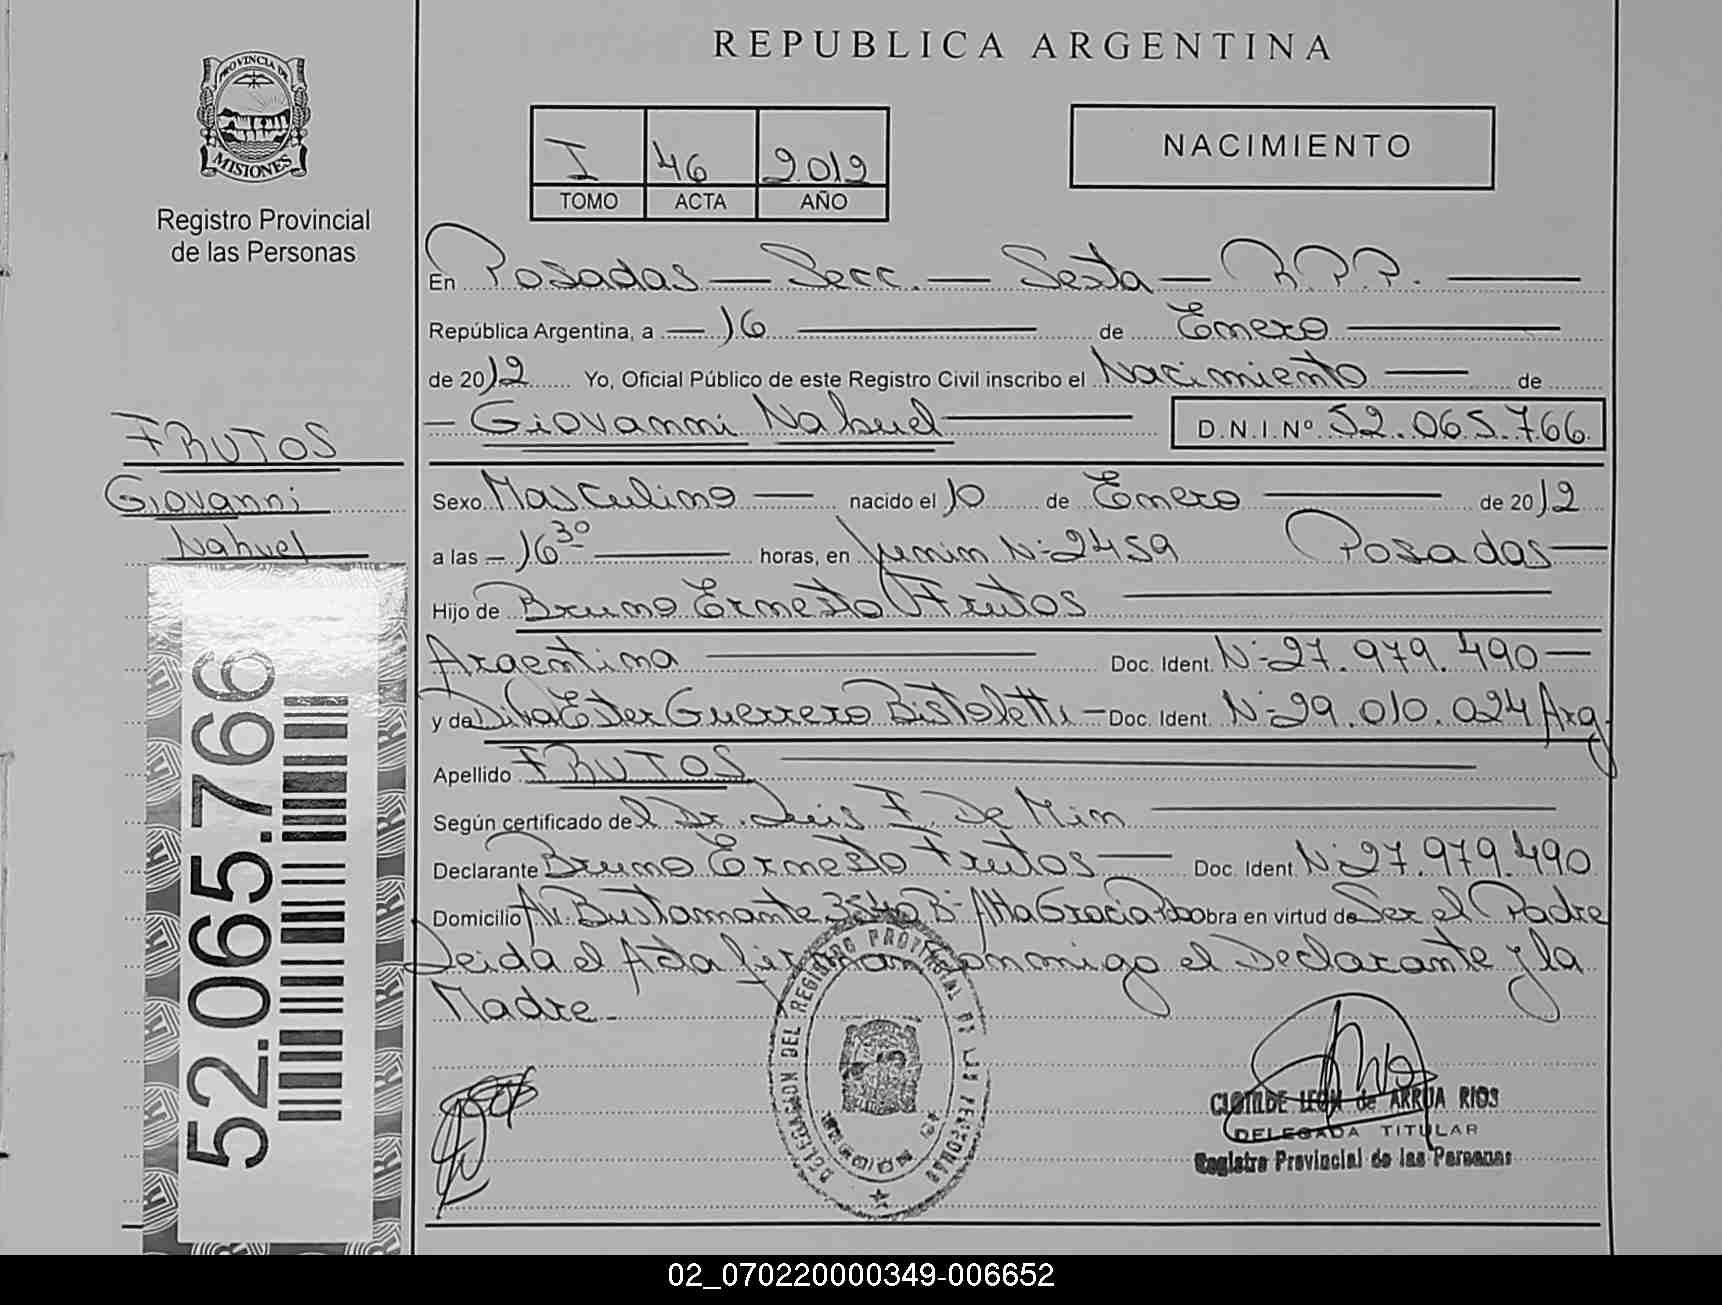 REPUBLICA ARGENTINA
PROVINCIA DE
MISIONES
Registro Provincial
de las Personas
I 46 2012
TOMO ACTA AÑO
NACIMIENTO
En Posadas — Secc. — Sexta — R.P.P. —
República Argentina, a — 16 — de Enero —
de 2012 Yo, Oficial Público de este Registro Civil inscribo el Nacimiento — de
— Giovanni Nahuel — D.N.I.Nº 52.065.766
FRUTOS
Giovanni
Nahuel
Sexo Masculino — nacido el 10 de Enero — de 2012
a las — 16 30 — horas, en Junin Nº 2459 Posadas —
Hijo de Bruno Ernesto Frutos —
Argentina — Doc. Ident. Nº 27.979.490 —
y de Diva Ester Guerrero Bistoletti — Doc. Ident. Nº 29.010.024 Arg
Apellido FRUTOS —
Según certificado del Dr. Luis F. De Mim —
Declarante Bruno Ernesto Frutos — Doc. Ident Nº 27.979.490
Domicilio Av. Bustamante 3540 Bº Alta Gracia Pdas obra en virtud de Ser el Padre
Leida el Acta firman conmigo el Declarante y la
Madre.
52.065.766
DELEGACION DEL REGISTRO PROVINCIAL DE LAS PERSONAS
CLOTILDE LEON de ARRUA RIOS
DELEGADA TITULAR
Registro Provincial de las Personas
02_070220000349-006652